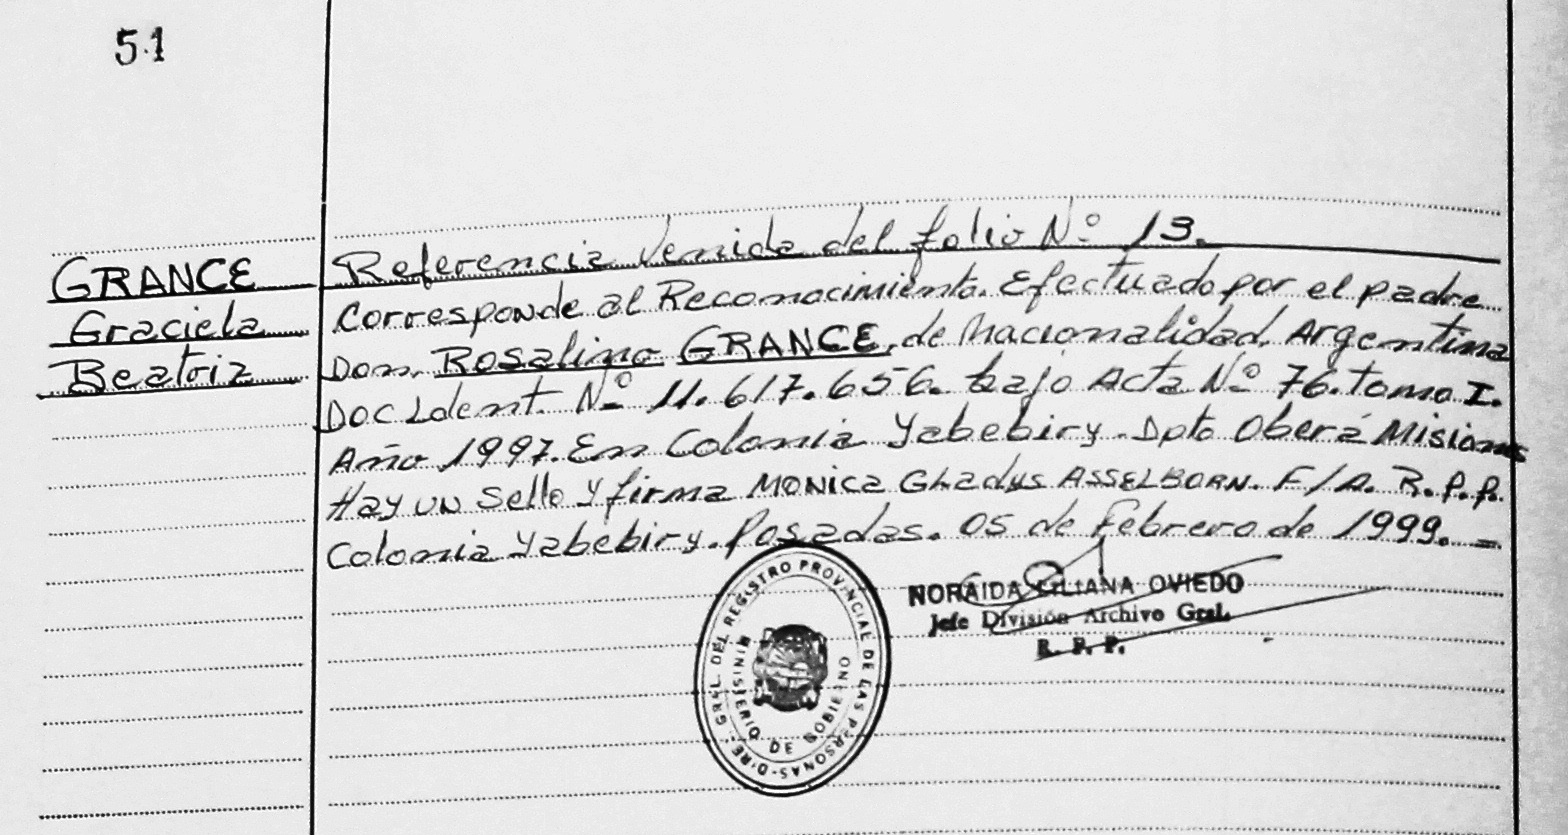 51
GRANCE
Graciela
Beatriz
Referencia Venida del folio Nº 13.
Corresponde al Reconocimiento. Efectuado por el padre
Don. Rosalino GRANCE, de Nacionalidad. Argentina
Doc Ident. Nº 11.617.656. bajo Acta Nº 76. tomo I.
Año 1997. En Colonia Yabebiry. Dpto Oberá Misiones
Hay un Sello y firma MONICA GLADYS ASSELBORN. F/A. R.P.P.
Colonia Yabebiry. Posadas. 05 de Febrero de 1999. =
NORAIDA LILIANA OVIEDO
Jefe División Archivo Gral.
R. P. P.
DIRE. GRAL. DEL REGISTRO PROVINCIAL DE LAS PERSONAS
MINISTERIO DE GOBIERNO